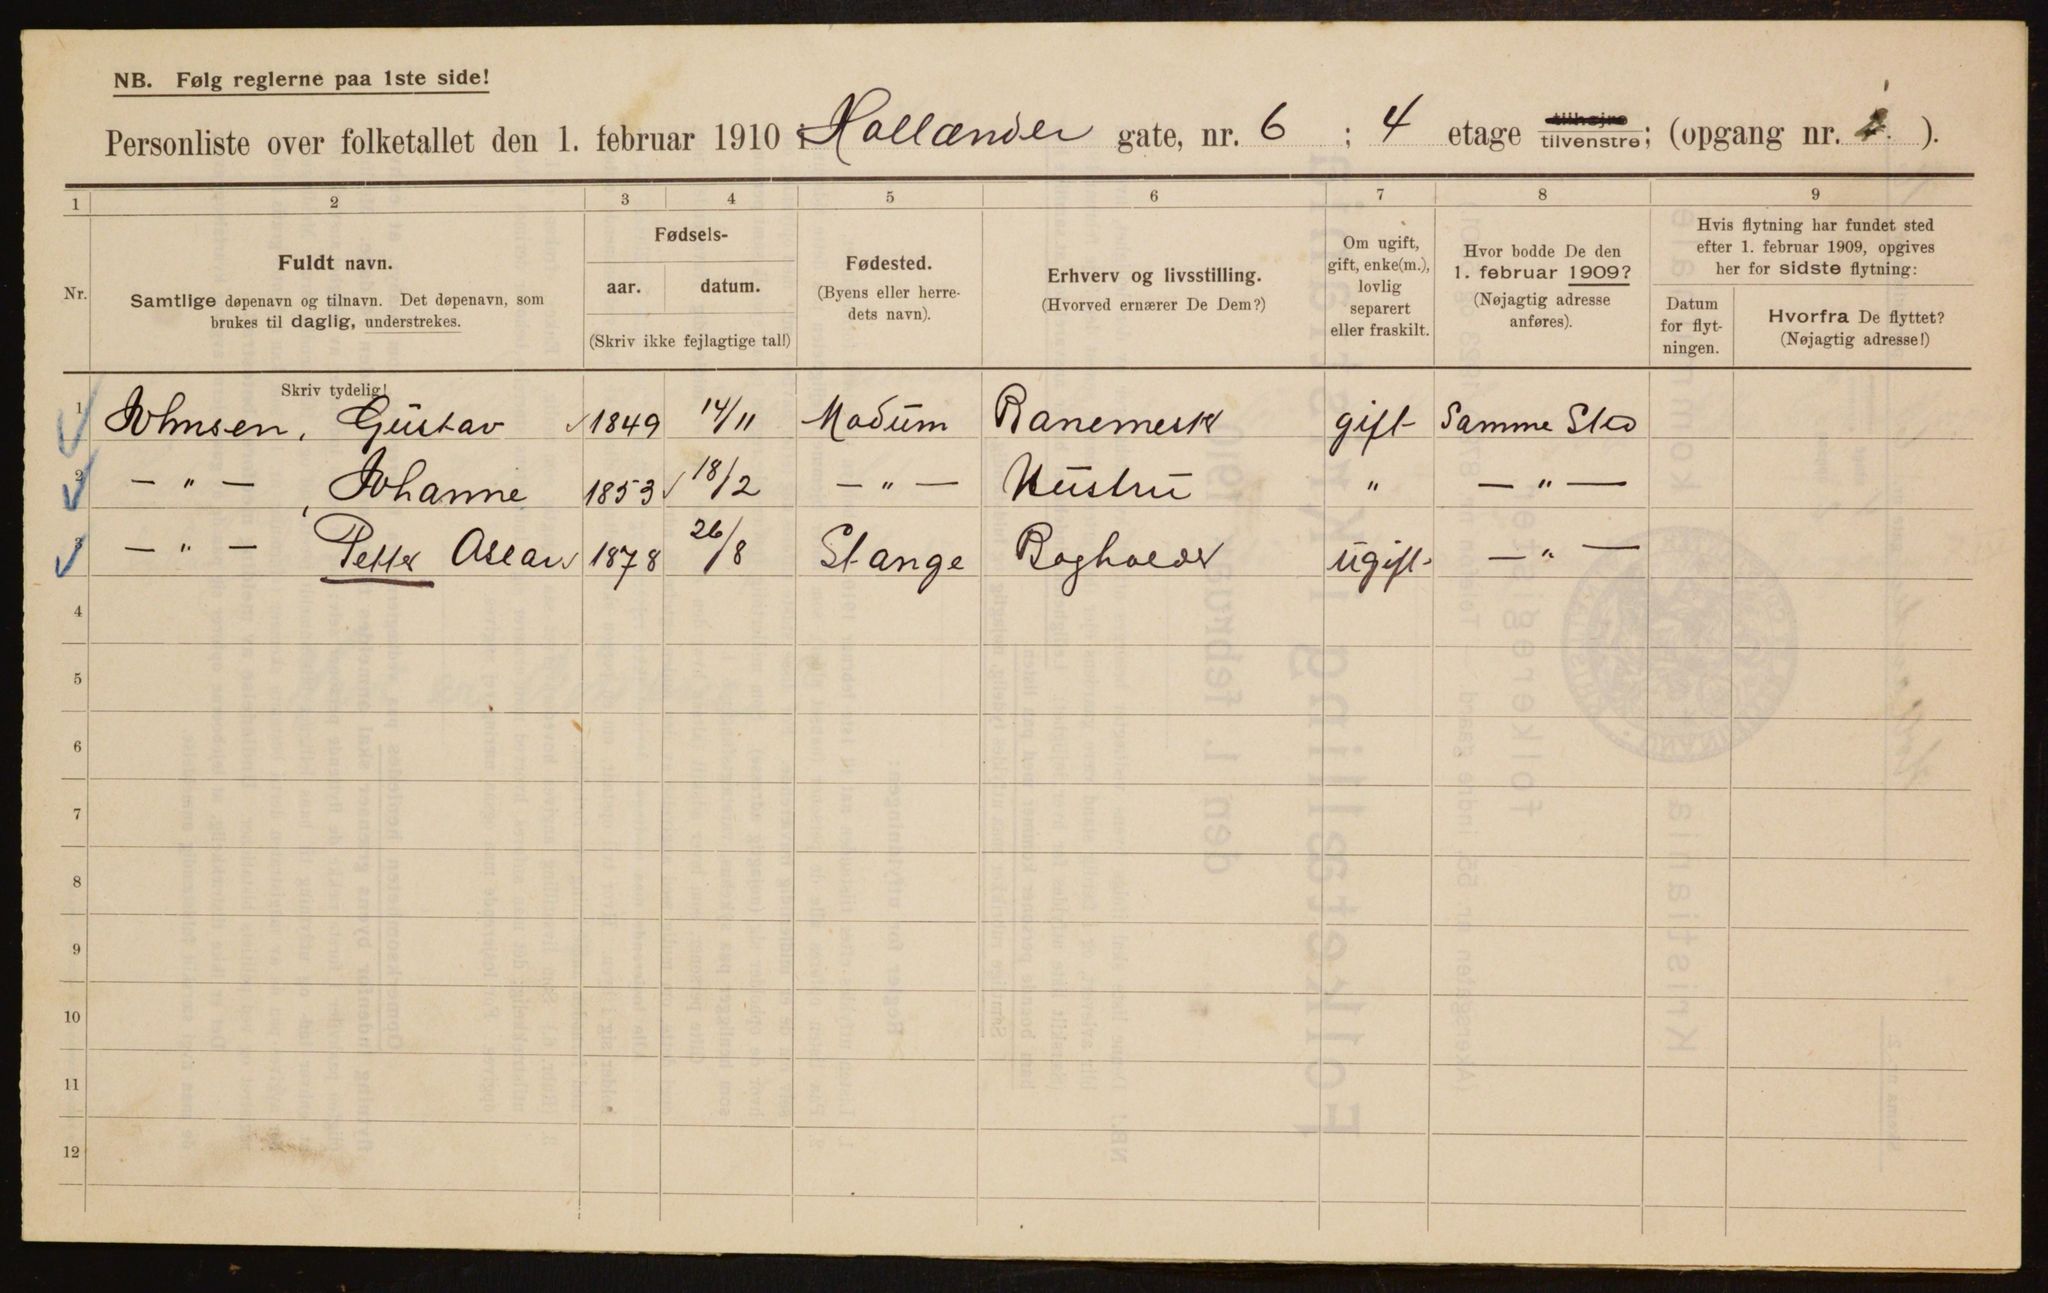 NB. Følg reglerne paa 1ste side!
Personliste over folketallet den 1. februar 1910 i Hollænder gate, nr. 6 ; 4 etage tilhøjre tilvenstre; (opgang nr. ).
1 2 3 4 5 6 7 8 9
Nr.
Fuldt navn.
Samtlige døpenavn og tilnavn. Det døpenavn, som
brukes til daglig, understrekes.
Fødsels-
aar. datum.
(Skriv ikke fejlagtige tal!)
Fødested.
(Byens eller herre-
dets navn).
Erhverv og livsstilling.
(Hvorved ernærer De Dem?)
Om ugift,
gift, enke(m.),
lovlig
separert
eller fraskilt.
Hvor bodde De den
1. februar 1909?
(Nøjagtig adresse
anføres).
Hvis flytning har fundet sted
efter 1. februar 1909, opgives
her for sidste flytning:
Datum
for flyt-
ningen.
Hvorfra De flyttet?
(Nøjagtig adresse!)
Skriv tydelig!
1 Johnsen, Gustav 1849 14/11 Modum Banemesk gift Samme Sted
2 — " — , Johanne 1853 18/2 — " — Hustru " — " —
3 — " — Petter Oscar 1878 26/8 Stange Bogholder ugift — " —
4
5
6
7
8
9
10
11
12